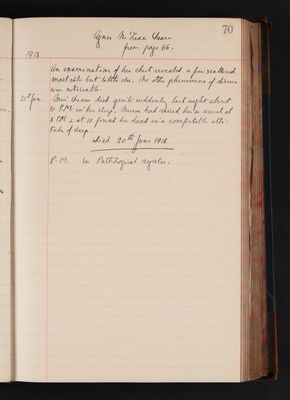 70
Agnes Mc
from page 66.
1918
An examination of her chest revealed a few scattered
moist rales but little else. No other phenomena of disease
were noticeable.
21st June. Miss died quite suddenly last night about
10 P.M. in her sleep. Nurse had her as usual at
8 P.M. & at 10 found her dead in a comfortable atti-
tude of sleep.
Died 20th June 1918
P.M. See Pathological register.